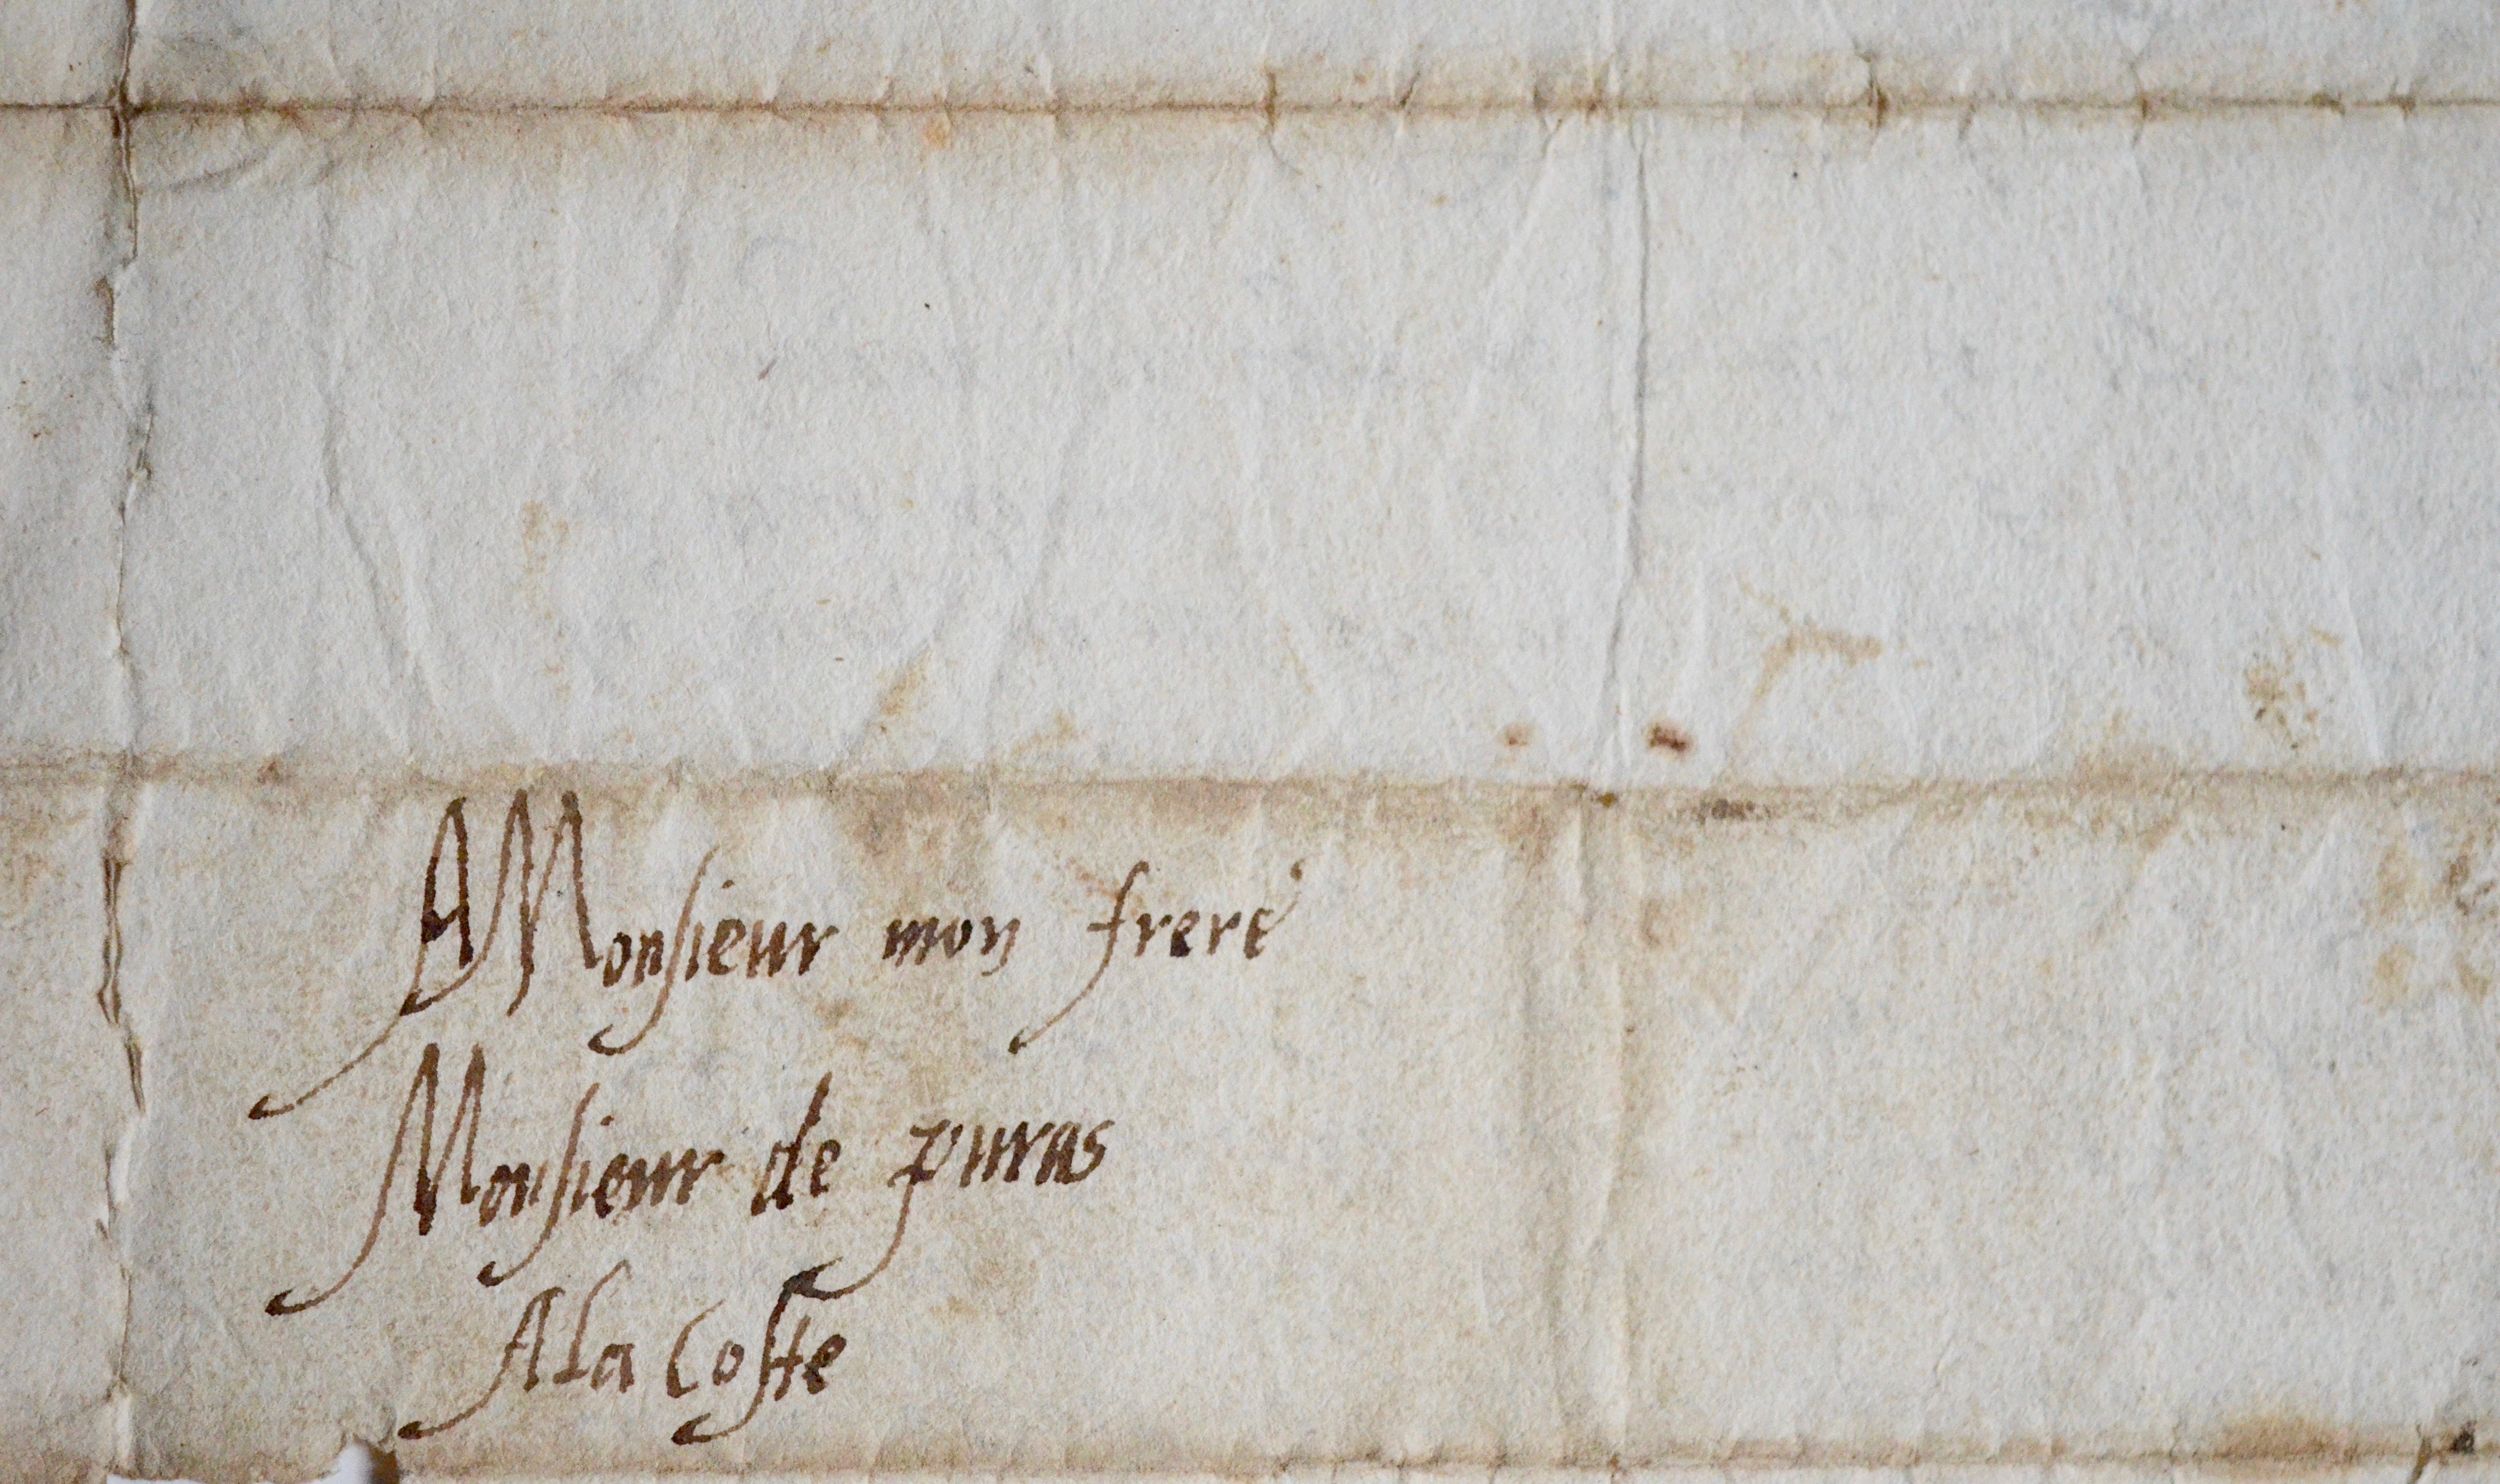 A Monsieur mon frere
Monsieur de puras
A la Coste